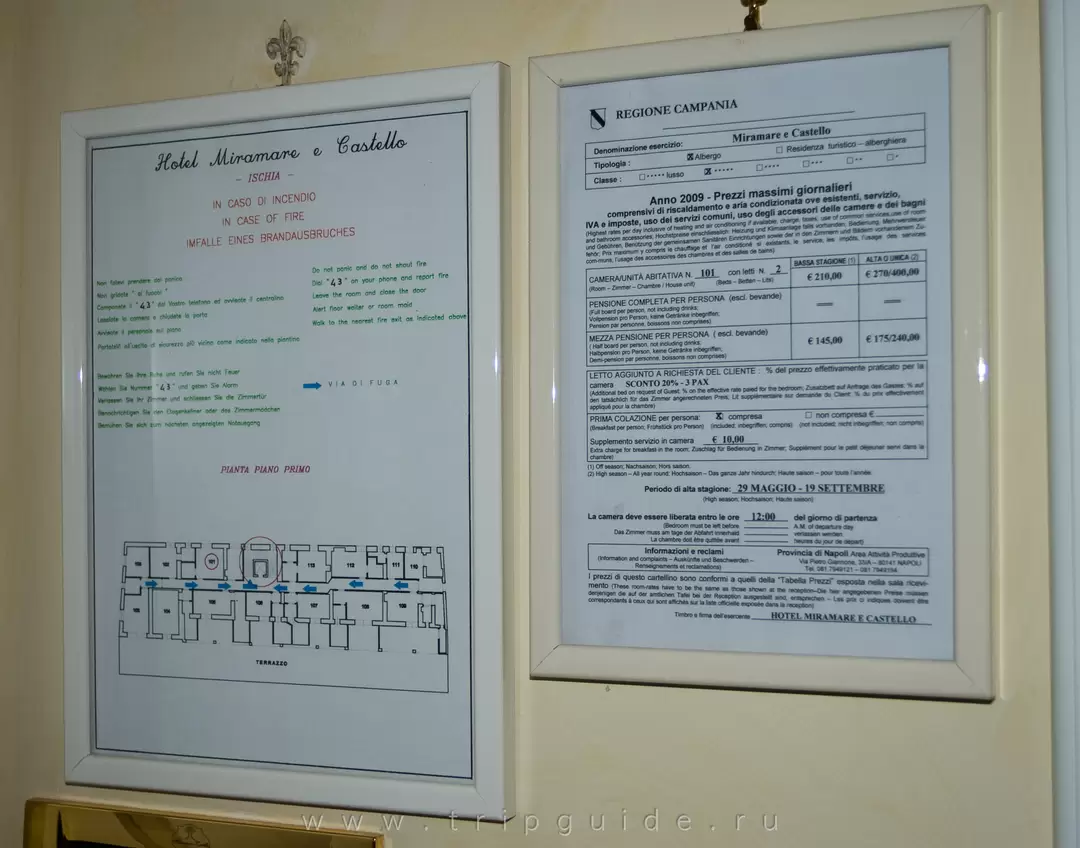 Hotel Miramare e Castello
- ISCHIA -
IN CASO DI INCENDIO
IN CASE OF FIRE
IMFALLE EINES BRANDAUSBRUCHES
Non fatevi prendere dal panico
Non gridate " al fuoco "
Componete il "43" dal Vostro telefono ed avvisate il centralino
Lasciate la camera e chiudete la porta
Avvisate il personale sul piano
Portatevi all'uscita di sicurezza più vicina come indicato nella piantina
Do not panic and do not shout fire
Dial "43" on your phone and report fire
Leave the room and close the door
Alert floor waiter or room maid
Walk to the nearest fire exit as indicated above
Bewahren Sie Ihre Ruhe und rufen Sie nicht Feuer
Wahlen Sie Nummer "43" und geben Sie Alarm
Verlassen Sie Ihr Zimmer und schliessen Sie die Zimmertür
Benachrichtigen Sie den Etagenkellner oder das Zimmermädchen
Bemühen Sie sich zum nächsten angezeigten Notausgang
VIA DI FUGA
PIANTA PIANO PRIMO
101 113 112 111 110
107 108 109
TERRAZZO
REGIONE CAMPANIA
Denominazione esercizio: Miramare e Castello
Tipologia : ☒ Albergo ☐ Residenza turistico – alberghiera
Classe : ☐ ***** lusso ☒ ***** ☐ **** ☐ *** ☐ ** ☐ *
Anno 2009 - Prezzi massimi giornalieri
comprensivi di riscaldamento e aria condizionata ove esistenti, servizio,
IVA e imposte, uso dei servizi comuni, uso degli accessori delle camere e dei bagni
(Highest rates per day inclusive of heating and air conditioning if available, charge, taxes, use of common services, use of room
and bathroom accessories; Höchstpreise einschliesslich: Heizung und Klimaanlage falls vorhanden, Bedienung, Mehrwertsteuer
und Gebühren, Benützung der gemeinsamen Sanitären Einrichtungen sowie der in den Zimmern und Bädern vorhandenen Zu-
behör; Prix maximum y compris le chauffage et l'air conditionné si existents, le service, les impôts, l'usage des services
communs, l'usage des accessoires des chambres et des salles de bains)
BASSA STAGIONE (1) ALTA O UNICA (2)
CAMERA/UNITÀ ABITATIVA N. 101 con letti N. 2 € 210,00 € 270/400,00
(Room – Zimmer – Chambre / House unit) (Beds – Betten – Lits)
PENSIONE COMPLETA PER PERSONA (escl. bevande)
(Full board per person, not including drinks;
Vollpension pro Person, keine Getränke inbegriffen;
Pension par personne, boissons non comprises)
MEZZA PENSIONE PER PERSONA ( escl. bevande) € 145,00 € 175/240,00
( Half board per person, not including drinks;
Halbpension pro Person, keine Getränke inbegriffen;
Demi-pension par personne, boissons non comprises)
LETTO AGGIUNTO A RICHIESTA DEL CLIENTE : % del prezzo effettivamente praticato per la
camera SCONTO 20% - 3 PAX
(Additional bed on request of Guest: % on the effective rate paied for the bedroom; Zusatzbett auf Anfrage des Gastes: % auf
den tatsächlich für das Zimmer angerechneten Preis; Lit supplémentaire sur demande du Client: % du prix effectivement
appliqué pour la chambre)
PRIMA COLAZIONE per persona: ☒ compresa ☐ non compresa €
(Breakfast per person; Frühstück pro Person) (included; inbegriffen; compris) (not included; nicht inbegriffen; non compris)
Supplemento servizio in camera € 10,00
Extra charge for breakfast in the room; Zuschlag für Bedienung in Zimmer; Supplément pour le petit déjeuner servi dans la
chambre)
(1) Off season; Nachsaison; Hors saison.
(2) High season – All year round: Hochsaison – Das ganze Jahr hindurch; Haute saison – pour toute l'année.
Periodo di alta stagione: 29 MAGGIO - 19 SETTEMBRE
(High season; Hochsaison; Haute saison)
La camera deve essere liberata entro le ore 12:00 del giorno di partenza
(Bedroom must be left before A.M. of departure day
Das Zimmer muss am tage der Abfahrt innerhalb verlassen werden
La chambre doit être quittée avant heures du jour de départ)
Informazioni e reclami Provincia di Napoli Area Attività Produttive
(Information and complaints – Auskünfte und Beschwerden – Via Pietro Giannone, 33/A – 80141 NAPOLI
Renseignements et réclamations) Tel. 081.7949121 – 081.7949194
I prezzi di questo cartellino sono conformi a quelli della "Tabella Prezzi" esposta nella sala ricevi-
mento (These room-rates have to be the same as those shown at the reception–Die hier angegebenen Preise müssen
denjenigen die auf der amtlichen Tafel bei der Reception ausgestellt sind, entsprechen – Les prix ci indiqués doivent être
correspondants à ceux qui sont affichés sur la liste officielle exposée dans la reception)
Timbro e firma dell'esercente HOTEL MIRAMARE E CASTELLO
www.tripguide.ru